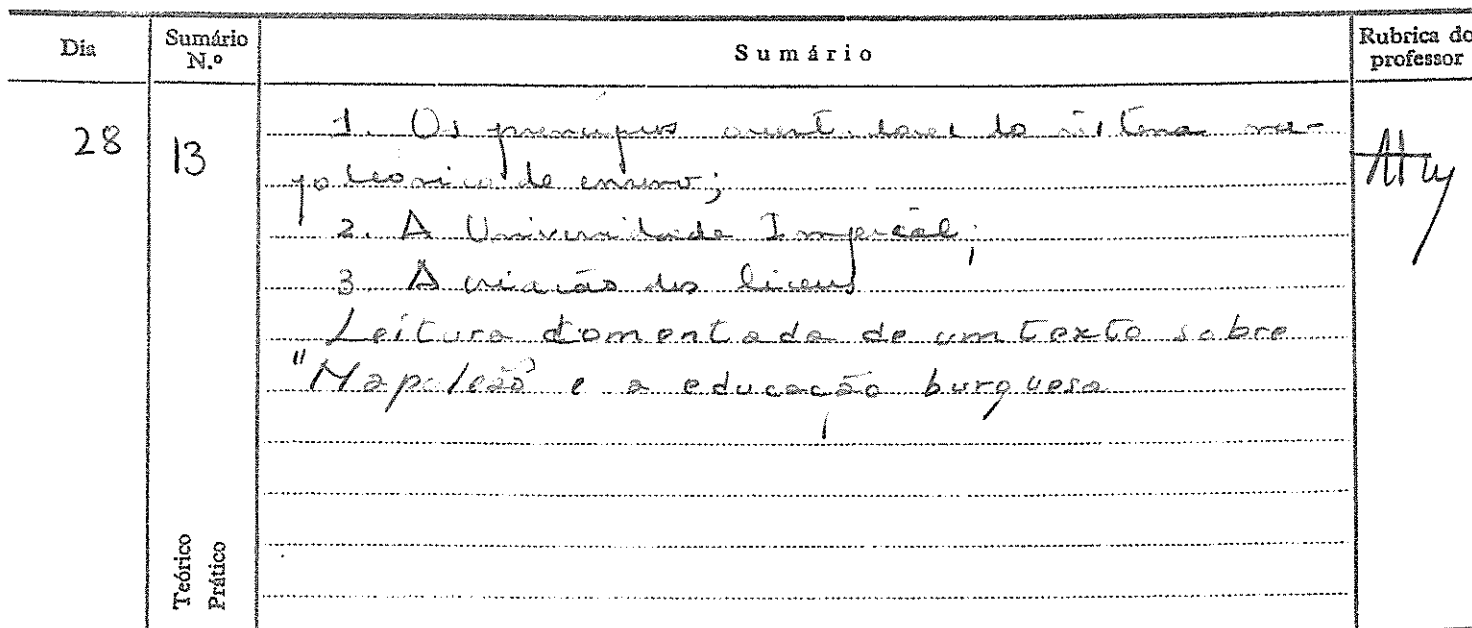 Dia
Sumário N.º
Sumário
Rubrica do professor
28
13
1. Os princípios orientadores do sistema na-
poleónico de ensino;
2. A Universidade Imperial;
3. A criação dos liceus
Leitura comentada de um texto sobre
"Napoleão" e a educação burguesa
Teórico
Prático